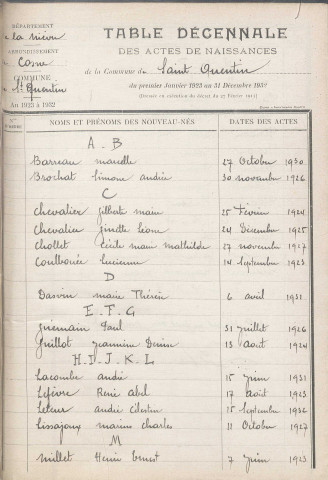 DÉPARTEMENT
de la nièvre
ARRONDISSEMENT
de Cosne
COMMUNE
de St Quentin
An 1923 à 1932
TABLE DÉCENNALE
DES ACTES DE NAISSANCES
de la Commune de Saint Quentin
du premier Janvier 1923 au 31 Décembre 1932
(Dressée en exécution du décret du
NOMS ET PRÉNOMS DES NOUVEAU-NÉS
DATES DES ACTES
A - B
Barreau marcelle 27 Octobre 1930
Brochat Simone andrée 30 novembre 1926
C
Chevalier Gilberte marie 25 Février 1924
Chevalier ginette Léone 24 Décembre 1925
Chollet Cécile marie mathilde 27 novembre 1927
Coulbouée Lucienne 14 Septembre 1923
D
marie Thérèse 6 avril 1931
E - F - G
Paul 31 juillet 1926
Guillot Jeannine Denise 13 août 1924
H.I.J.K.L
Lacombe andré 15 juin 1931
Lefèvre René abel 17 août 1923
andré Célestin 15 Septembre 1926
Lissajoux maxime charles 11 Octobre 1927
M
millet Henri Ernest 7 juin 1923